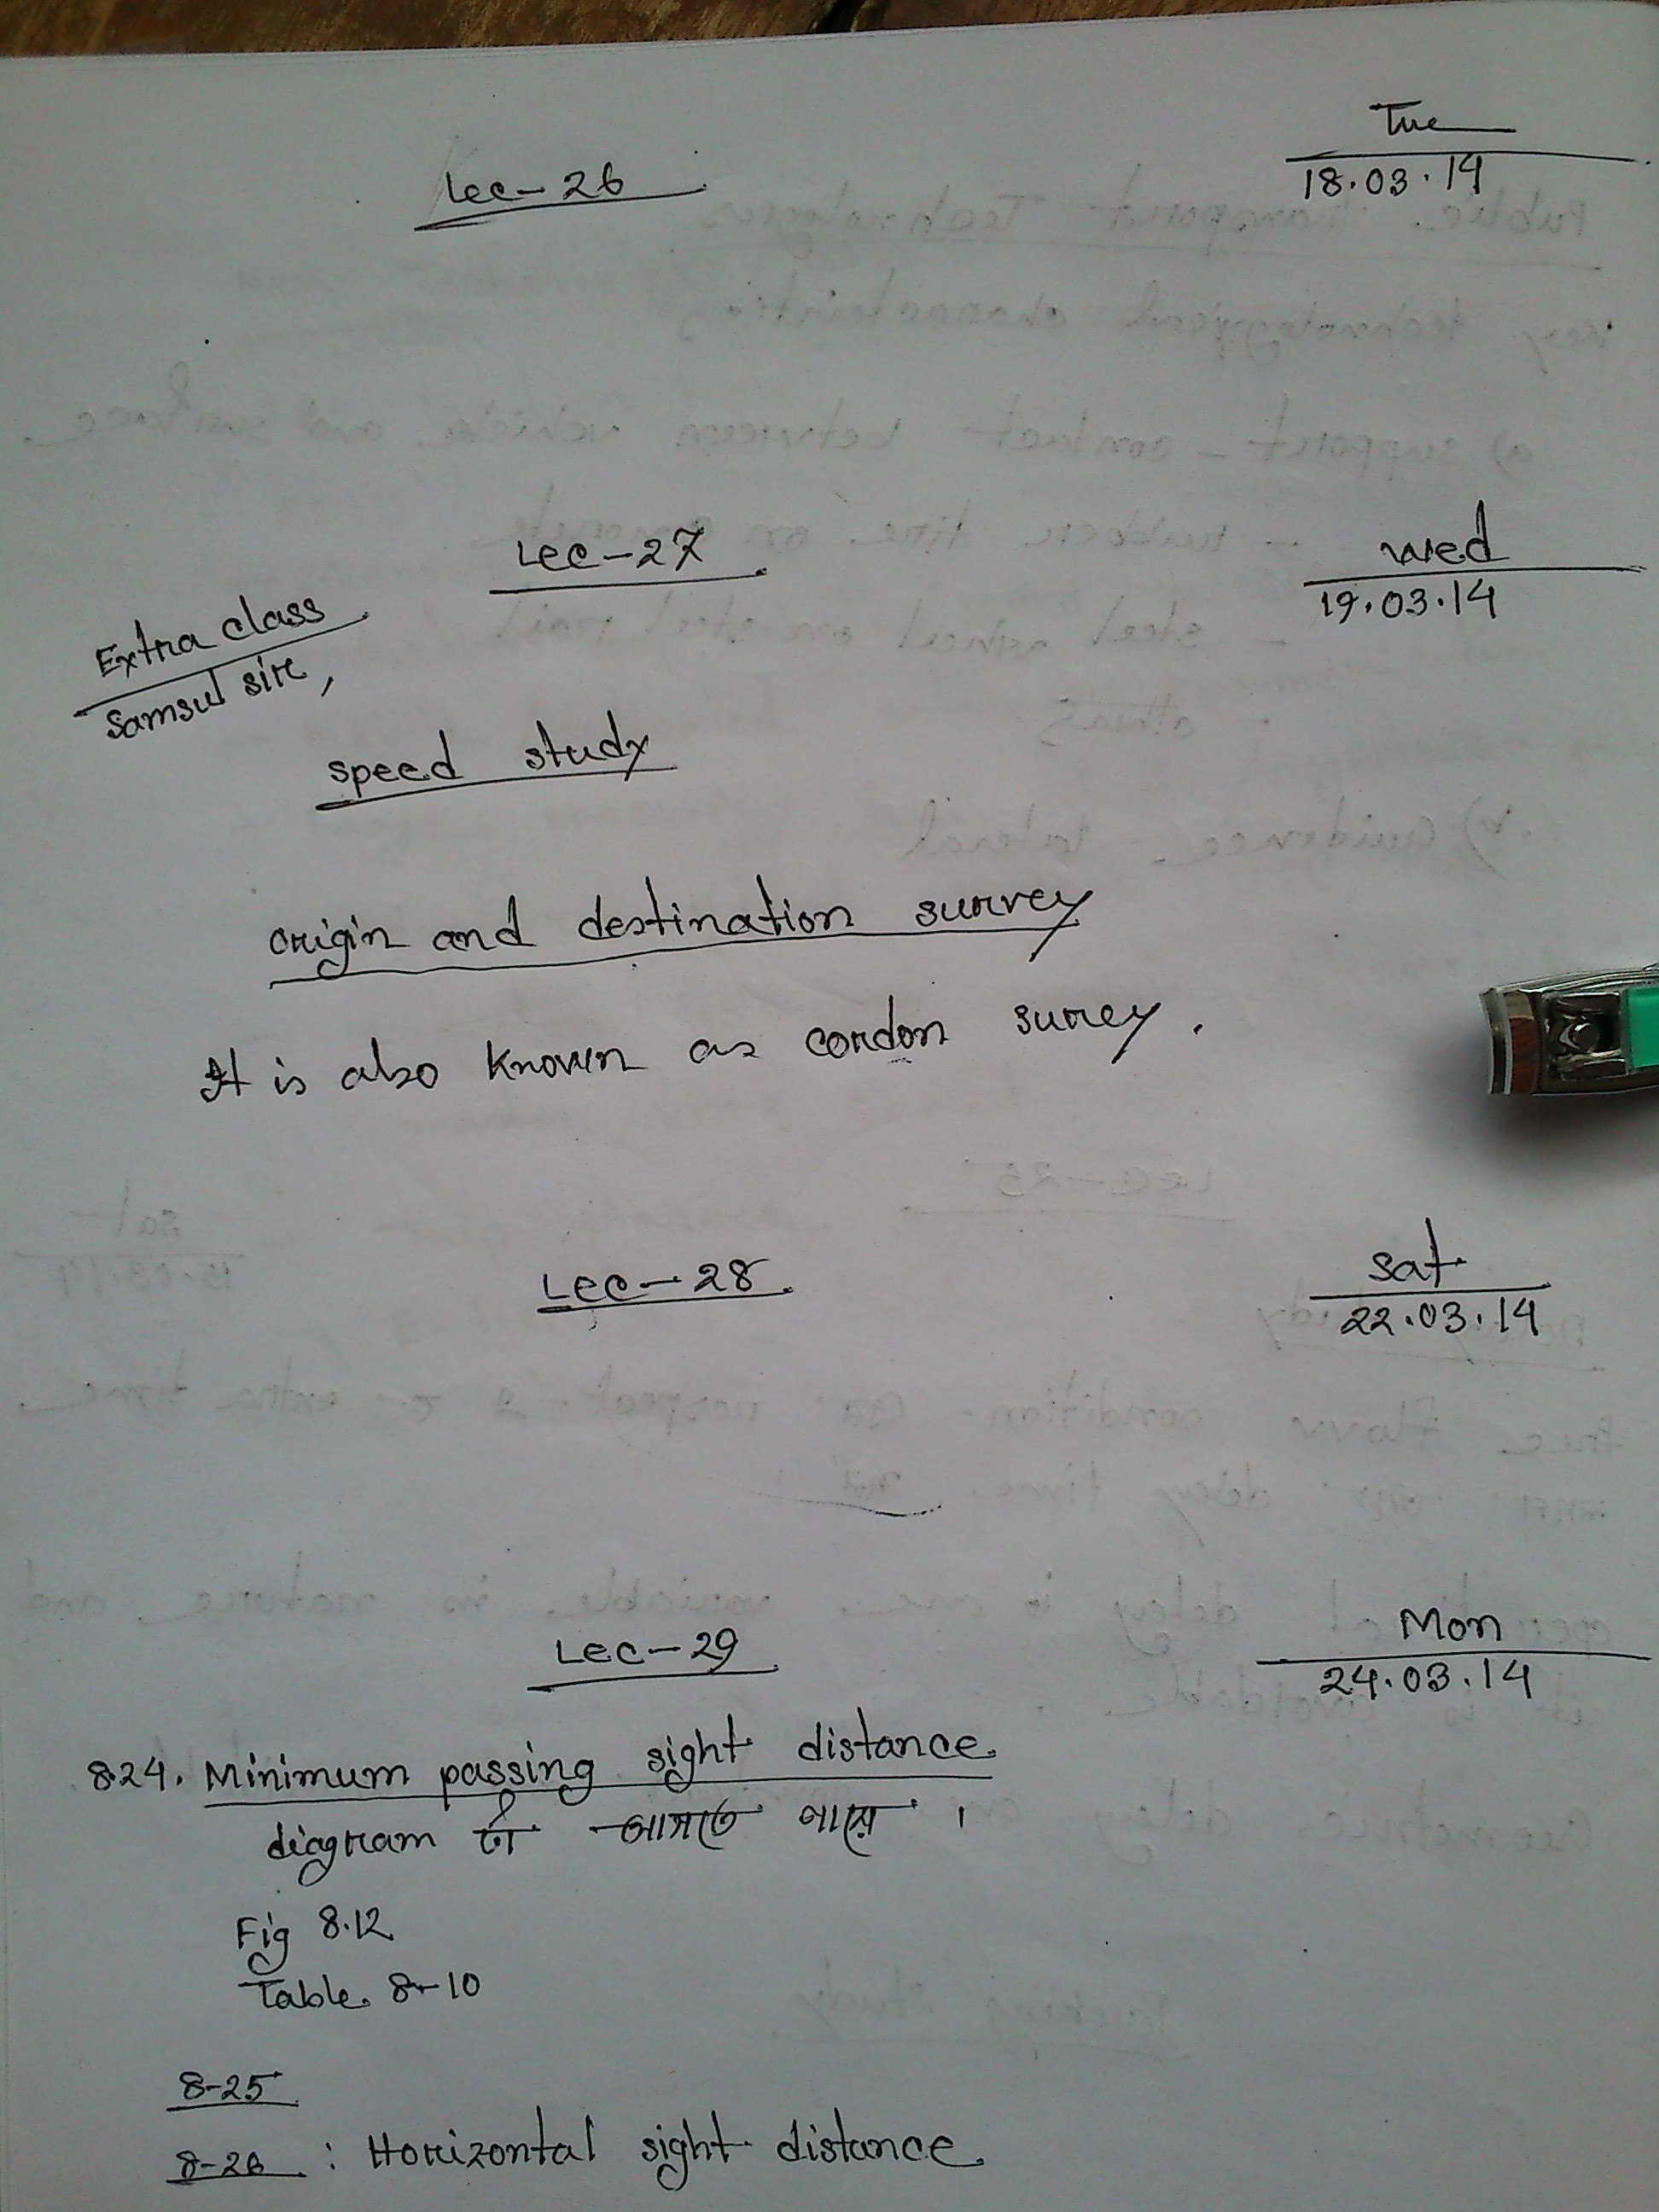 Tue
Lec-26
18.03.14
Lec-27
Wed
19.03.14
Extra class
Samsul sir,
speed study
origin and destination survey
It is also known as cordon surey.
Lec-28
Sat
22.03.14
Lec-29
Mon
24.03.14
8.24. Minimum passing sight distance
diagram টা আসতে পারে।
Fig 8.12
Table 8-10
8-25
8-26 : Horizontal sight distance